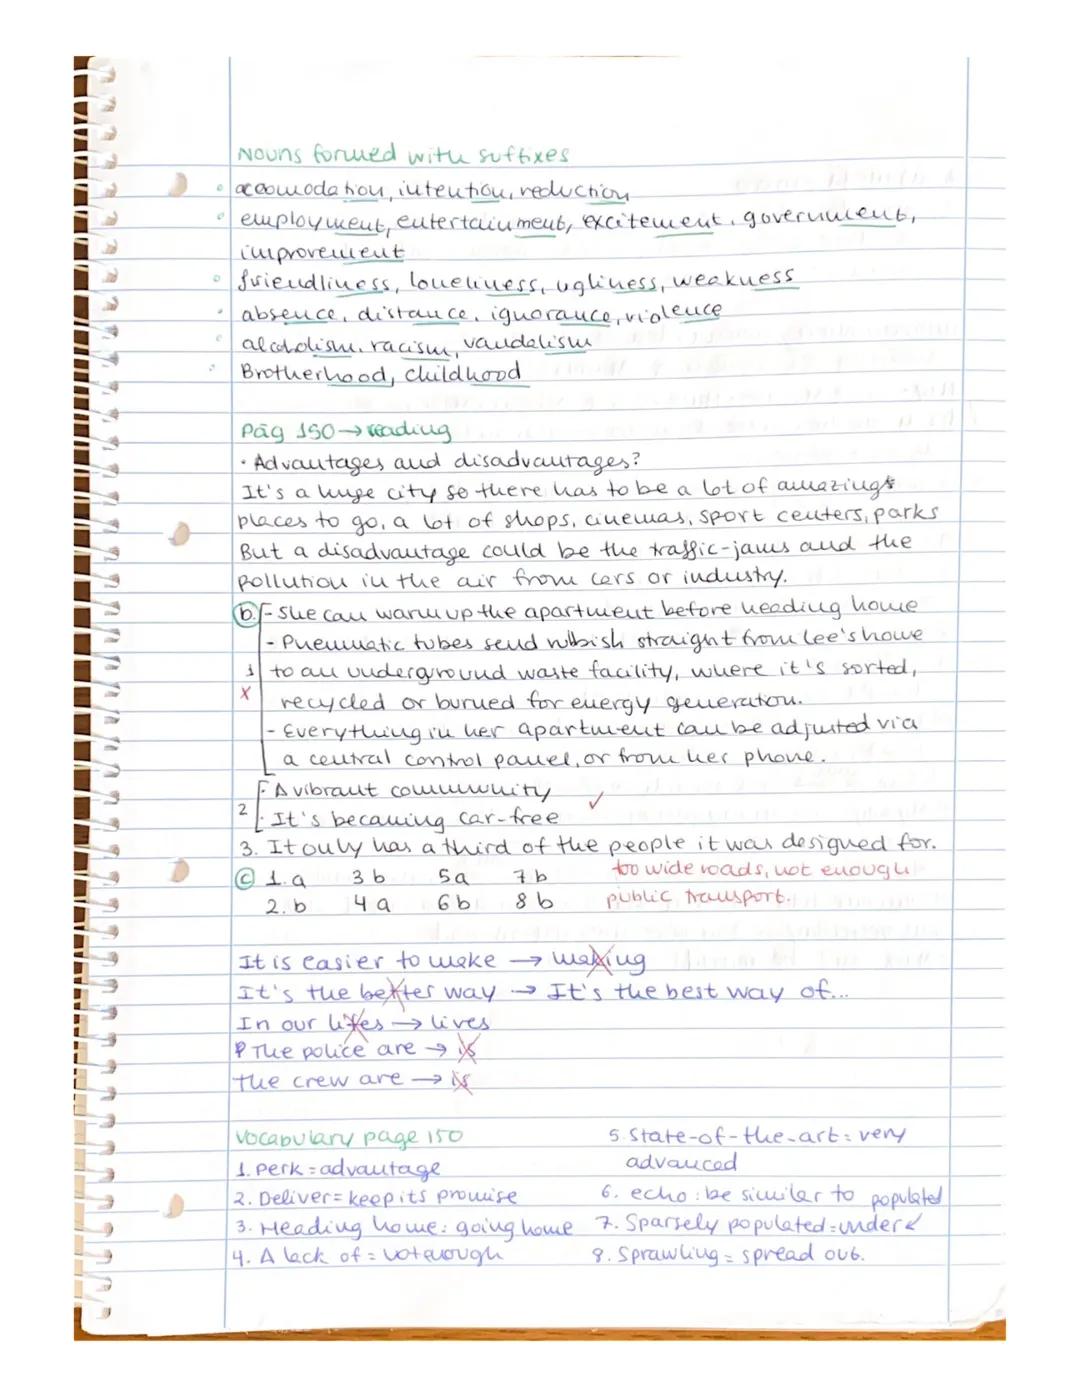 Nouns formed with suffixes
accomodation, intention, reduction
employment, entertainment, excitement, government,
improvement
friendliness, loneliness, ugliness, weakness
absence, distance, ignorance, violence
alcoholism, racism, vandalism
Brotherhood, childhood
Pág 150 → reading
· Advantages and disadvantages?
It's a huge city so there has to be a lot of amazing
places to go, a lot of shops, cinemas, sport centers, parks
But a disadvantage could be the traffic-jams and the
pollution in the air from cars or industry.
b. - She can warm up the apartment before heading home
- Pneumatic tubes send rubbish straight from Lee's home
1 to an underground waste facility, where it's sorted,
x recycled or burned for energy generation.
- Everything in her apartment can be adjusted via
a central control panel, or from her phone.
· A vibrant community
2 · It's becaming car-free ✓
3. It only has a third of the people it was designed for.
too wide roads, not enough
public transport.
c 1. a 3 b 5 a 7 b
2. b 4 a 6 b 8 b
It is easier to make → making
It's the better way → It's the best way of...
In our lifes → lives
The police are → is
the crew are → is
Vocabulary page 150
1. Perk = advantage
2. Deliver = keep its promise
3. Heading home: going home
4. A lack of = not enough
5. State-of-the-art: very
advanced
6. echo: be similar to
7. Sparsely populated = under populated
8. Sprawling = spread out.